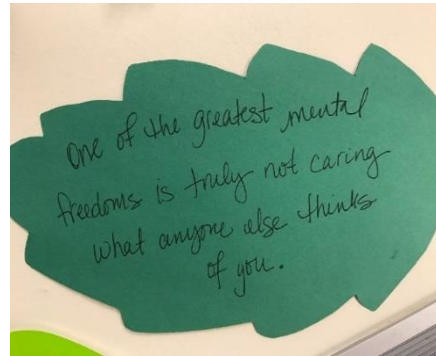 One of the greatest mental
freedoms is truly not caring
what anyone else thinks
of you.